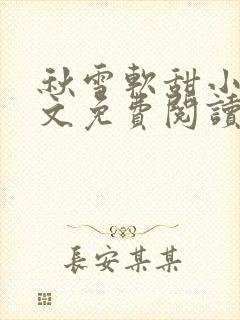 秋雪軟甜小
文免費閱讀
長安某某